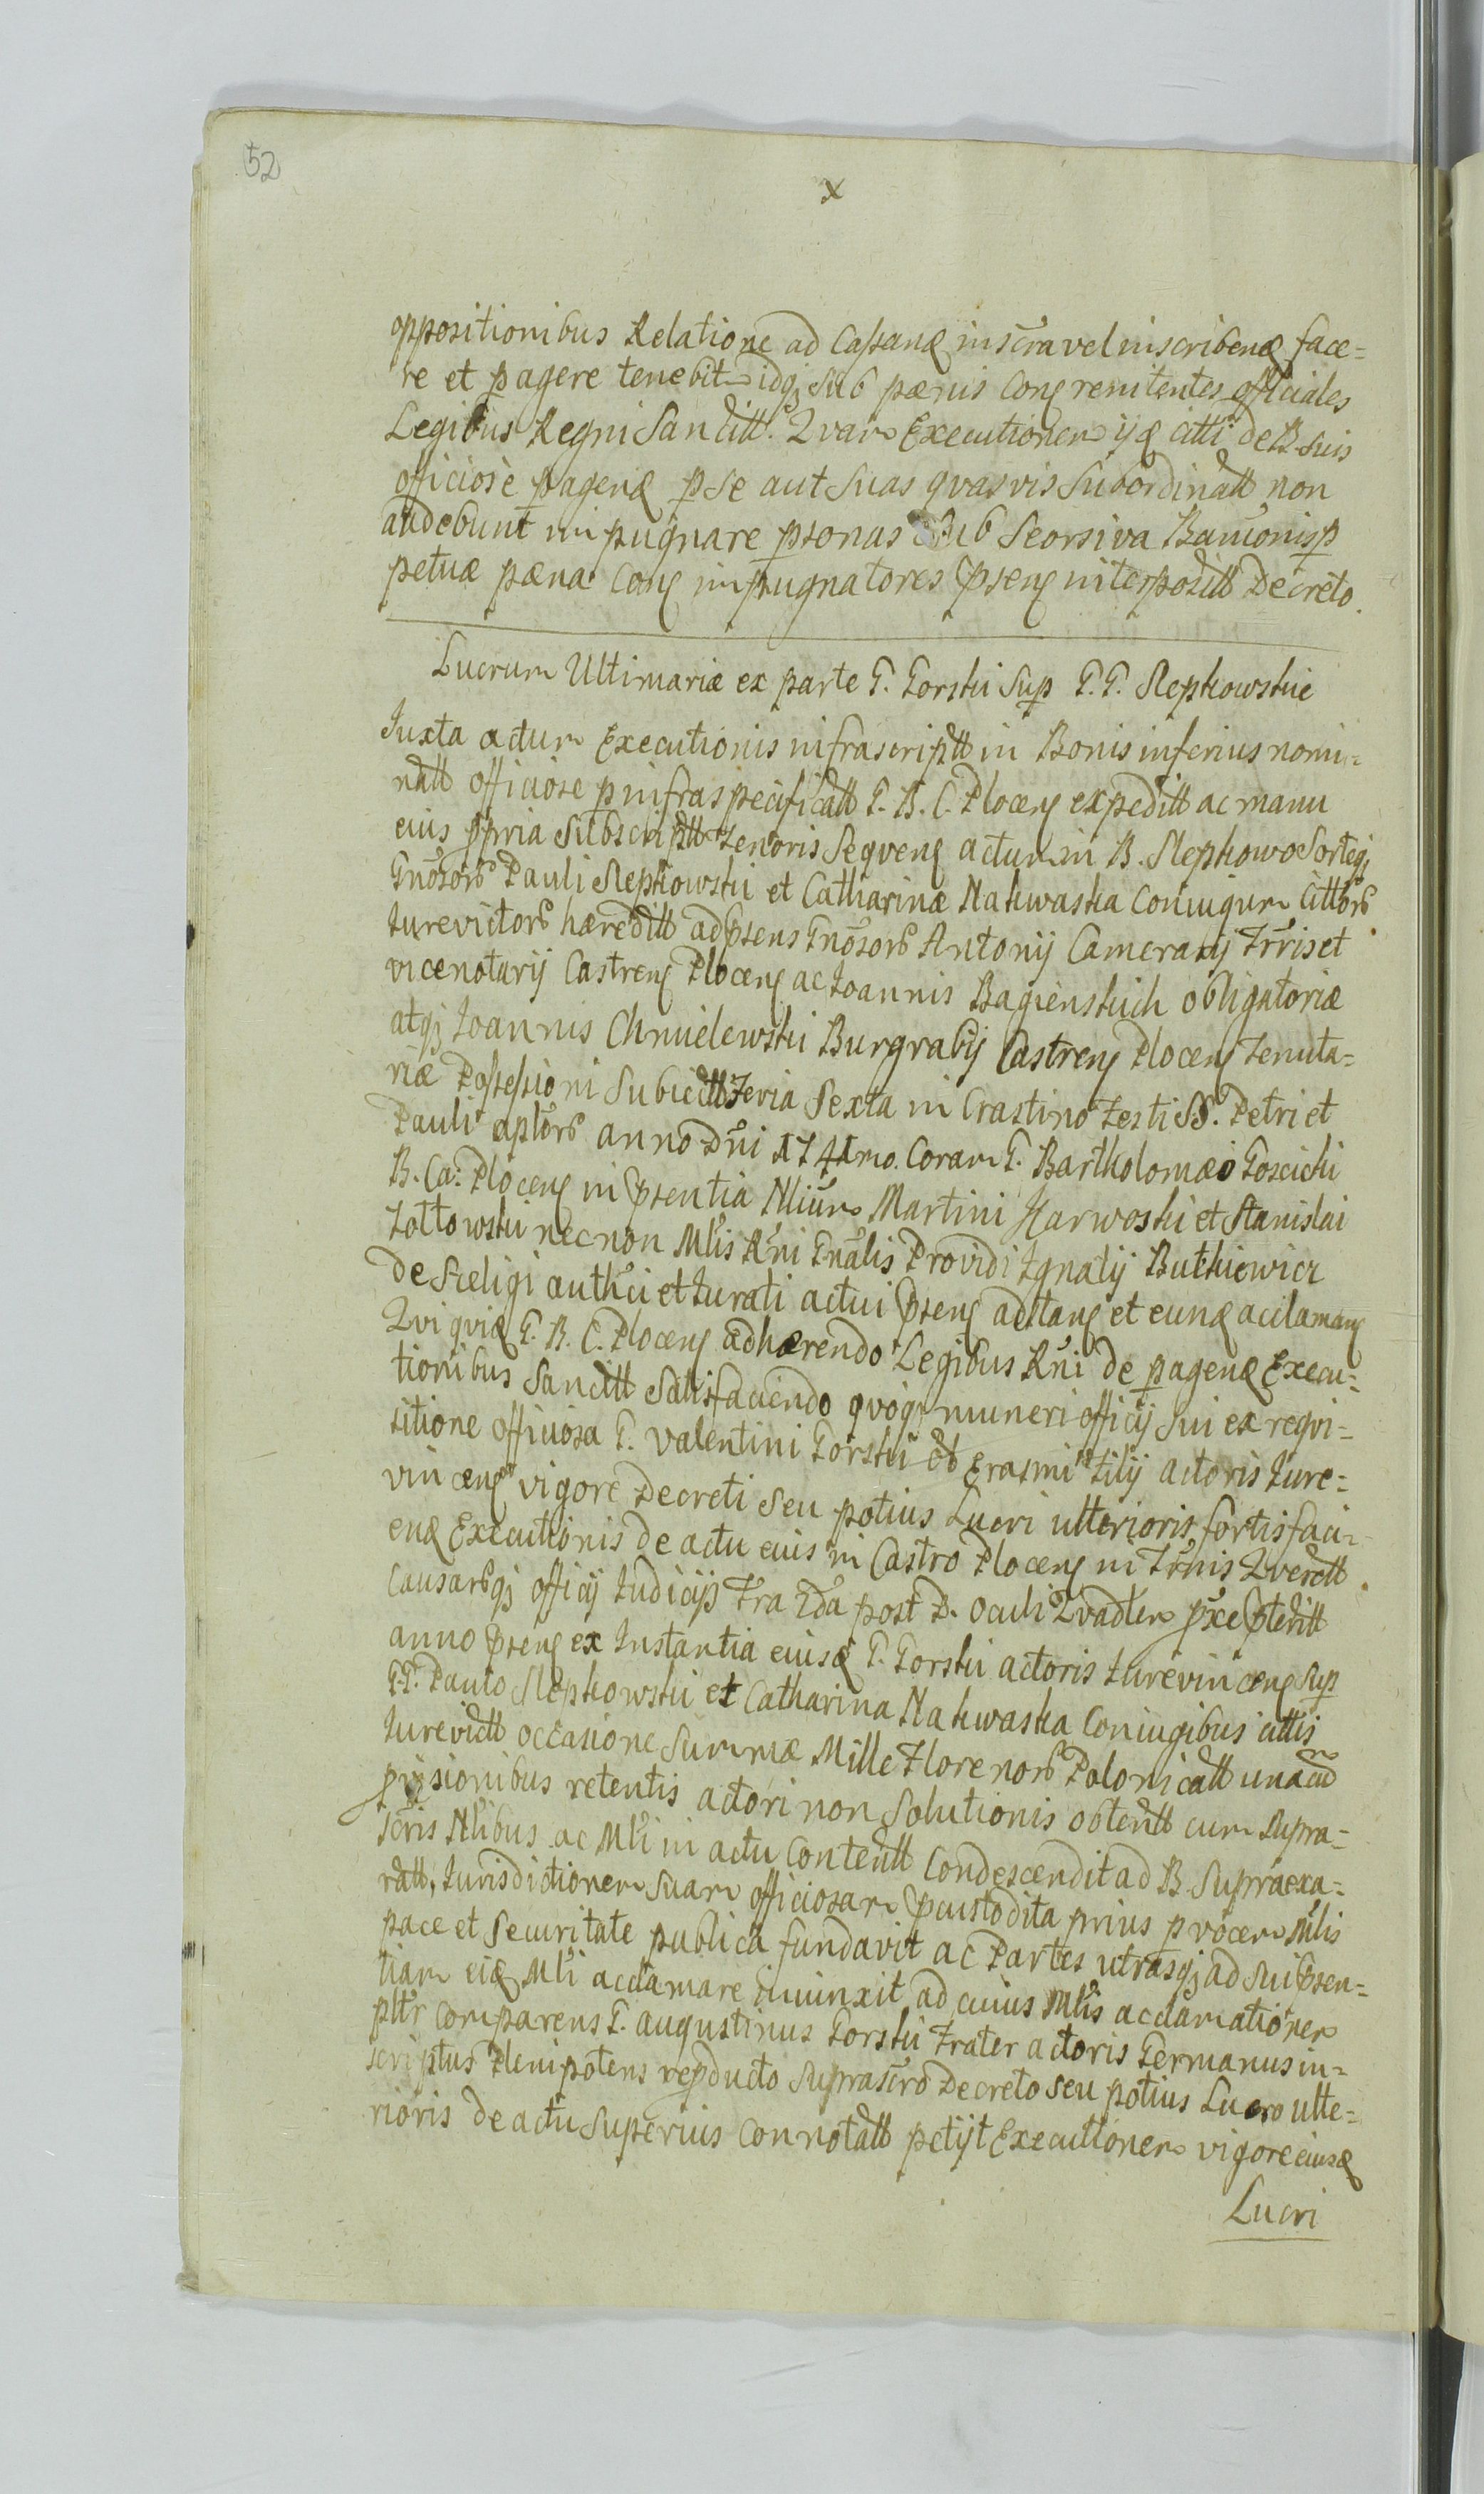 52
x
oppositionibus Relatione ad Cassand inscra vel inscribend face=
re et pagere tenebit idq; sub pænis Cong renitentes officiales
Legibus Regni Sancitt. Qvam Executionem ijd citti de B. suis
officiosè pagend p se aut suas qvasvis Subordinatt non
audebunt impugnare psonas Sub Seorsiva Bannonis p
petuæ pæna Cong impugnatores pseng interposill Decreto.
Lucrum Ultimariæ ex parte G. Gorski sup G.G. Slepkowskie
Iuxta actum Executionis infrascriptt in Bonis inferius nomi=
natt officiose p infraspecificatt G. B. C. Ploceng expeditt ac manu
eius ppria Subscriptt Tenoris Seqveng actum in B. Slepkowo Sorteq;
Gnosorb Pauli Slepkowski et Catharinæ Nakwaska Coniugum Cittorb
Iurevictorb hæreditt ad psens Gnosorb Antonij Camerarij Trris et
vicenotarij Castreng Ploceng ac Joannis Bagienskich obligatoriæ
atq; Joannis Chmielewski Burgrabij Castreng Ploceng Tenuta=
riæ Possessioni Subiectt Feria Sexta in Crastino Festi SS. Petri et
Pauli aplorb anno Dni 1741mo. Coram G. Bartholomæo Goscicki
B. Ca: Ploceng in psentia Nlium Martini Karwoski et Stanislai
Zottowski necnon Mlis Rni Gnalis Providi Ignatij Butkiewicz
de Szeligi authci et Iurati actui pseng adstang et eund acclamang
Qvi qvid G. B. C. Ploceng adhærendo Legibus Rni de pagend Execu=
tionibus Sancitt Satisfaciendo qvoq; muneri officij sui ex reqvi=
sitione officiosa G. Valentini Gorski et Erasmi Filij actoris Iure=
vinceng vigore Decreti seu potius Lucri ulterioris fortis faci=
end Executionis de actu eius in Castro Ploceng in Trmis Qverett
Causarbq; officij Iudicijs Fra 2da post D. Oculi Qvadlem pxe pteritt
anno pseng ex Instantia eiusd G. Gorski actoris Iurevinceng sup
G.G. Paulo Slepkowski et Catharina Nakwaska Coniugibus cittis
Iurevictt occasione Summæ Mille Florenorb Polonicatt una cum
pvisionibus retentis actori non Solutionis obtentt cum supra=
scris Nlibus ac Mli in actu Contentt Condescendit ad B. Supraexa=
ratt, Iurisdictionem Suam officiosam pcustodita prius p vocem Mlis
pace et Securitate publica fundavit ac Partes utrasq; ad sui psen=
tiam eid Mli acclamare iniunxit ad cuius Mlis acclamationem
pltr Comparens G. Augustinus Gorski Frater actoris Germanus in=
scriptus Plenipotens repducto suprascro Decreto seu potius Lucro ulte=
rioris de actu Superius Connotatt petijt Executionem vigore eiusd
Lucri